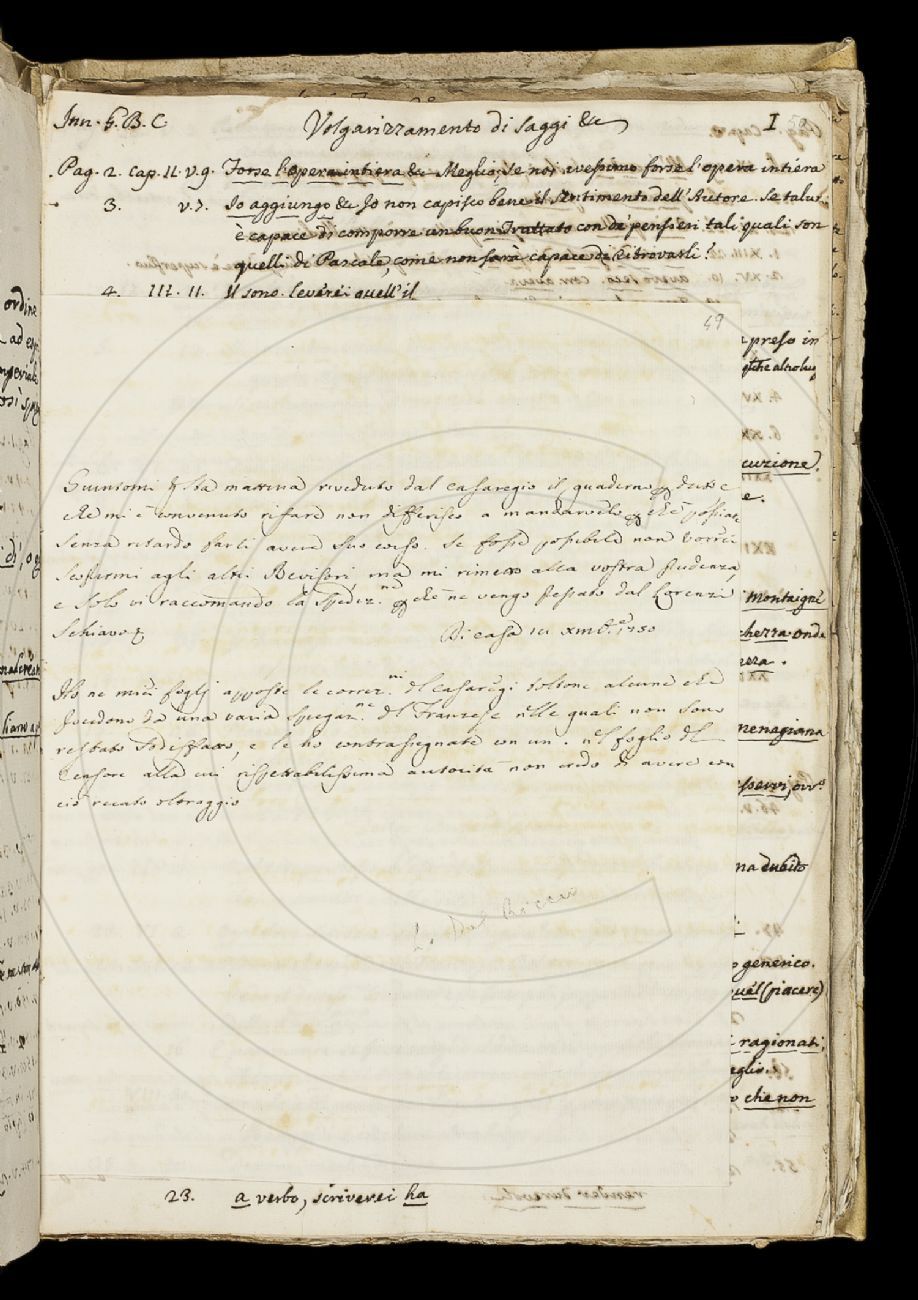 Inn. G. B. C. Volgarizzamento di Saggi &c I 50
Pag. 2. Cap. II. v. 9. Forse l'opera intiera &c Meglio, Se noi avessimo forse l'opera intiera
3. v. 7. Io aggiungo &c Io non capisco bene il Sentimento dell'Autore. Se taluno
è capace di comporre un buon Trattato con de' pensieri tali quali son
quelli di Pascale, come non sarà capace di ritrovarli?
4. III. 11. Il sono. leverei quell'il
49
preso in
che alcolug
cuzione.
e.
matina riveduto dal Casaregio il quaderno detto e
che mi è convenuto rifare non differisco a mandarvelo
senza ritardo farli avere suo corso. Se fosse possibile non vorrei
agli altri Revisori, ma mi rimetto alla vostra prudenza,
Montaigne
e solo vi raccomando la Spediz.ne che ne vengo pestato dal Lorenzi
Schiavo
Di casa 1750
chezza onde
nera.
Ho ne miei foglj apposte le correz.ni del Casaregi toltone alcune che
procedono da una varia Spiegaz.ne del Franzese nelle quali non sono
menagiana
restato sodisfatto, e le ho contrassegnate con un . nel foglio del
Censore alla cui rispettabilissima autorità non credo di avere con
ciò recato oltraggio
servi, ovv.o
na dubito
generico.
quel (piacere)
ragionati,
eglio.
che non
23. a verbo, scriverei ha